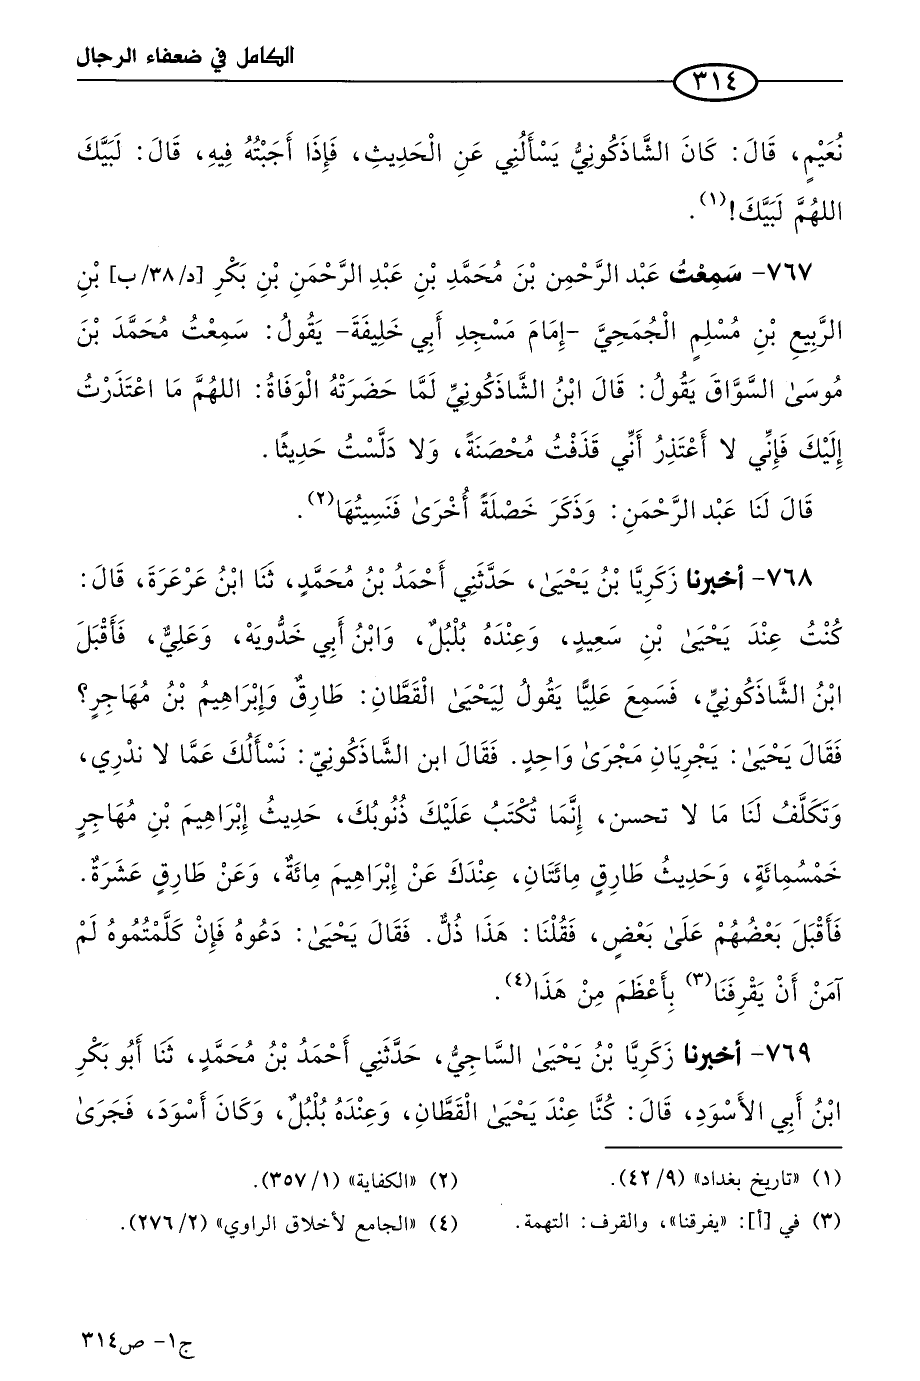 الكامل في ضعفاء الرجال
٣١٤
نُعَيْمٍ، قَالَ: كَانَ الشَّاذَكُونِيُّ يَسْأَلُنِي عَنِ الْحَدِيثِ، فَإِذَا أَجَبْتُهُ فِيهِ، قَالَ: لَبَيَّكَ
اللهُمَّ لَبَيَّكَ!(١).
٧٦٧- سَمِعْتُ عَبْد الرَّحْمِن بْنَ مُحَمَّدِ بْنِ عَبْدِ الرَّحْمَنِ بْنِ بَكْرِ [د/٣٨/ب] بْنِ
الرَّبِيعِ بْنِ مُسْلِمٍ الْجُمَحِيَّ -إِمَامَ مَسْجِدِ أَبِي خَلِيفَةَ- يَقُولُ: سَمِعْتُ مُحَمَّدَ بْنَ
مُوسَىٰ السَّوَّاقَ يَقُولُ: قَالَ ابْنُ الشَّاذَكُونِيِّ لَمَّا حَضَرَتْهُ الْوَفَاةُ: اللهُمَّ مَا اعْتَذَرْتُ
إِلَيْكَ فَإِنِّي لا أَعْتَذِرُ أَنِّي قَذَفْتُ مُحْصَنَةً، وَلا دَلَّسْتُ حَدِيثًا.
قَالَ لَنَا عَبْد الرَّحْمَنِ: وَذَكَرَ خَصْلَةً أُخْرَىٰ فَنَسِيتُهَا(٢).
٧٦٨- أخبرنا زَكَرِيَّا بْنُ يَحْيَىٰ، حَدَّثَنِي أَحْمَدُ بْنُ مُحَمَّدٍ، ثَنَا ابْنُ عَرْعَرَةَ، قَالَ:
كُنْتُ عِنْدَ يَحْيَىٰ بْنِ سَعِيدٍ، وَعِنْدَهُ بُلْبُلٌ، وَابْنُ أَبِي خَدُّويَهْ، وَعَلِيٌّ، فَأَقْبَلَ
ابْنُ الشَّاذَكُونِيِّ، فَسَمِعَ عَلِيًّا يَقُولُ لِيَحْيَىٰ الْقَطَّانِ: طَارِقٌ وَإِبْرَاهِيمُ بْنُ مُهَاجِرٍ؟
فَقَالَ يَحْيَىٰ: يَجْرِيَانِ مَجْرَىٰ وَاحِدٍ. فَقَالَ ابن الشَّاذَكُونِيّ: نَسْأَلُكَ عَمَّا لا نذرِي،
وَتَكَلَّفُ لَنَا مَا لا تحسن، إِنَّمَا تُكْتَبُ عَلَيْكَ ذُنُوبُكَ، حَدِيثُ إِبْرَاهِيمَ بْنِ مُهَاجِرٍ
خَمْسُمِائَةٍ، وَحَدِيثُ طَارِقٍ مِائَتَانِ، عِنْدَكَ عَنْ إِبْرَاهِيمَ مِائَةٌ، وَعَنْ طَارِقٍ عَشَرَةٌ.
فَأَقْبَلَ بَعْضُهُمْ عَلَىٰ بَعْضٍ، فَقُلْنَا: هَذَا ذُلٌّ. فَقَالَ يَحْيَىٰ: دَعُوهُ فَإِنْ كَلَّمْتُمُوهُ لَمْ
آمَنْ أَنْ يَقْرِفَنَا(٣) بِأَعْظَمَ مِنْ هَذَا(٤).
٧٦٩- أخبرنا زَكَرِيَّا بْنُ يَحْيَىٰ السَّاجِيُّ، حَدَّثَنِي أَحْمَدُ بْنُ مُحَمَّدٍ، ثَنَا أَبُو بَكْرِ
ابْنُ أَبِي الأَسْوَدِ، قَالَ: كُنَّا عِنْدَ يَحْيَىٰ الْقَطَّانِ، وَعِنْدَهُ بُلْبُلٌ، وَكَانَ أَسْوَدَ، فَجَرَىٰ
(١) «تاريخ بغداد» (٩/ ٤٢). (٢) «الكفاية» (١/ ٣٥٧).
(٣) في [أ]: «يفرقنا»، والقرف: التهمة. (٤) «الجامع لأخلاق الراوي» (٢/ ٢٧٦).
ج١- ص٣١٤